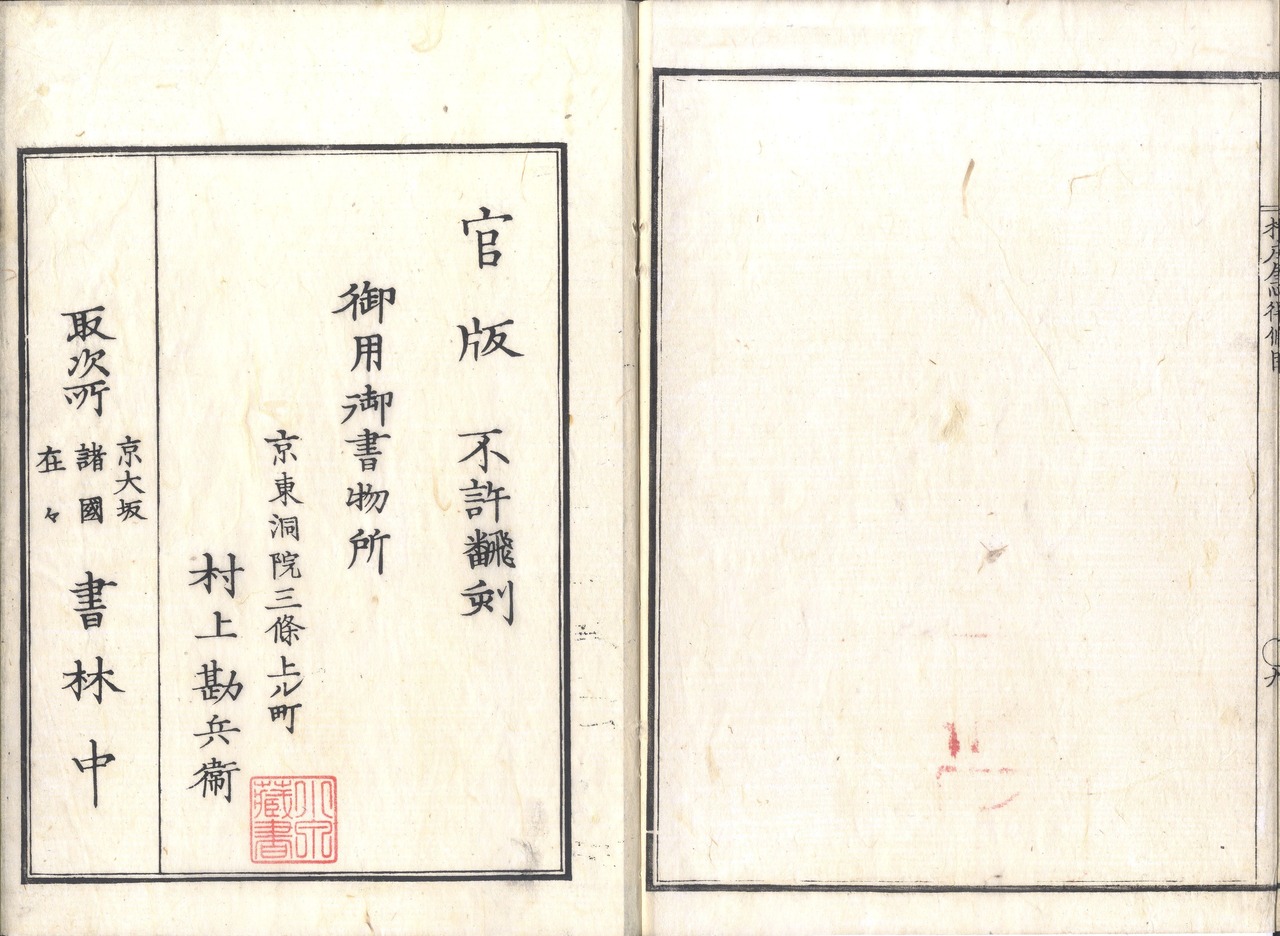 官版 不許飜刻
御用御書物所
京東洞院三條上ル町
村上勘兵衞
取次所
京大坂
諸國
在々
書林中
藏書